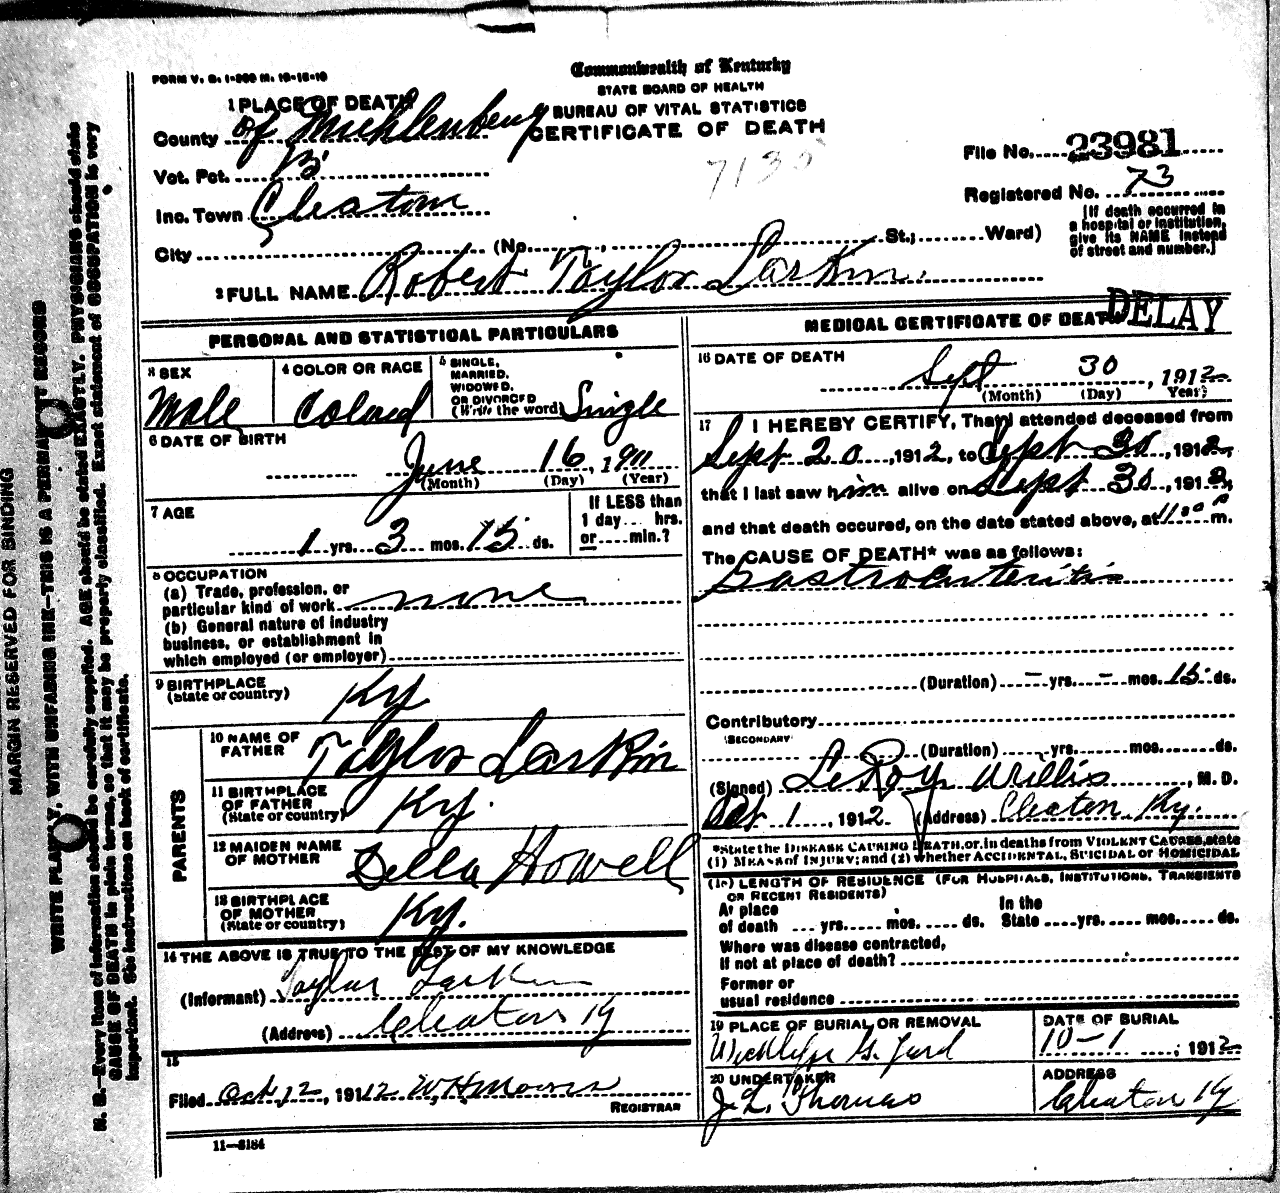 FORM V. S. 1-200 M. 10-18-10
Commonwealth of Kentucky
STATE BOARD OF HEALTH
BUREAU OF VITAL STATISTICS
CERTIFICATE OF DEATH
1 PLACE OF DEATH
County of Muhlenberg
Vot. Pct. 13
Inc. Town Cleaton
City (No. , St.; Ward)
7135
File No. 23981
Registered No. 73
[If death occurred in
a hospital or institution,
give its NAME instead
of street and number.]
2 FULL NAME Robert Taylor Larkin
DELAY
PERSONAL AND STATISTICAL PARTICULARS
3 SEX
Male
4 COLOR OR RACE
Colard
5 SINGLE,
MARRIED,
WIDOWED,
OR DIVORCED
(Write the word) Single
6 DATE OF BIRTH
June 16, 1911
(Month) (Day) (Year)
7 AGE
1 yrs. 3 mos. 15 ds.
If LESS than
1 day... hrs.
or.....min.?
8 OCCUPATION
(a) Trade, profession, or
particular kind of work none
(b) General nature of industry
business, or establishment in
which employed (or employer)
9 BIRTHPLACE
(State or country) Ky
PARENTS
10 NAME OF
FATHER Taylor Larkin
11 BIRTHPLACE
OF FATHER
(State or country) Ky.
12 MAIDEN NAME
OF MOTHER Della Howell
13 BIRTHPLACE
OF MOTHER
(State or country) Ky.
14 THE ABOVE IS TRUE TO THE BEST OF MY KNOWLEDGE
(Informant) Taylor Larkin
(Address) Cleaton Ky
15
Filed Oct 12, 1912 W.H. Moores
REGISTRAR
11—3184
MEDICAL CERTIFICATE OF DEATH
16 DATE OF DEATH
Sept 30, 1912
(Month) (Day) Year)
17 I HEREBY CERTIFY, That I attended deceased from
Sept 20, 1912, to Sept 30, 1912,
that I last saw him alive on Sept 30, 1912,
and that death occured, on the date stated above, at 11:30 P m.
The CAUSE OF DEATH* was as follows:
Gastroenteritis
(Duration) - yrs. - mos. 15 ds.
Contributory
SECONDARY
(Duration) yrs. mos. ds.
(Signed) LeRoy Willis, M. D.
Oct 1, 1912 (Address) Cleaton, Ky.
*State the DISEASE CAUSING DEATH, or, in deaths from VIOLENT CAUSES, state
(1) MEANS of INJURY; and (2) whether ACCIDENTAL, SUICIDAL or HOMICIDAL
(18) LENGTH OF RESIDENCE (FOR HOSPITALS, INSTITUTIONS, TRANSIENTS
OR RECENT RESIDENTS)
At place In the
of death ... yrs. mos. ds. State yrs. mos. ds.
Where was disease contracted,
if not at place of death?
Former or
usual residence
19 PLACE OF BURIAL OR REMOVAL
Wickliffe G. Yard
DATE OF BURIAL
10-1, 1912
20 UNDERTAKER
J. L. Thomas
ADDRESS
Cleaton Ky
MARGIN RESERVED FOR BINDING
WRITE PLAINLY, WITH UNFADING INK—THIS IS A PERMANENT RECORD
N. B.—Every item of information should be carefully supplied. AGE should be stated EXACTLY. PHYSICIANS should state
CAUSE OF DEATH in plain terms, so that it may be properly classified. Exact statement of OCCUPATION is very
important. See instructions on back of certificate.